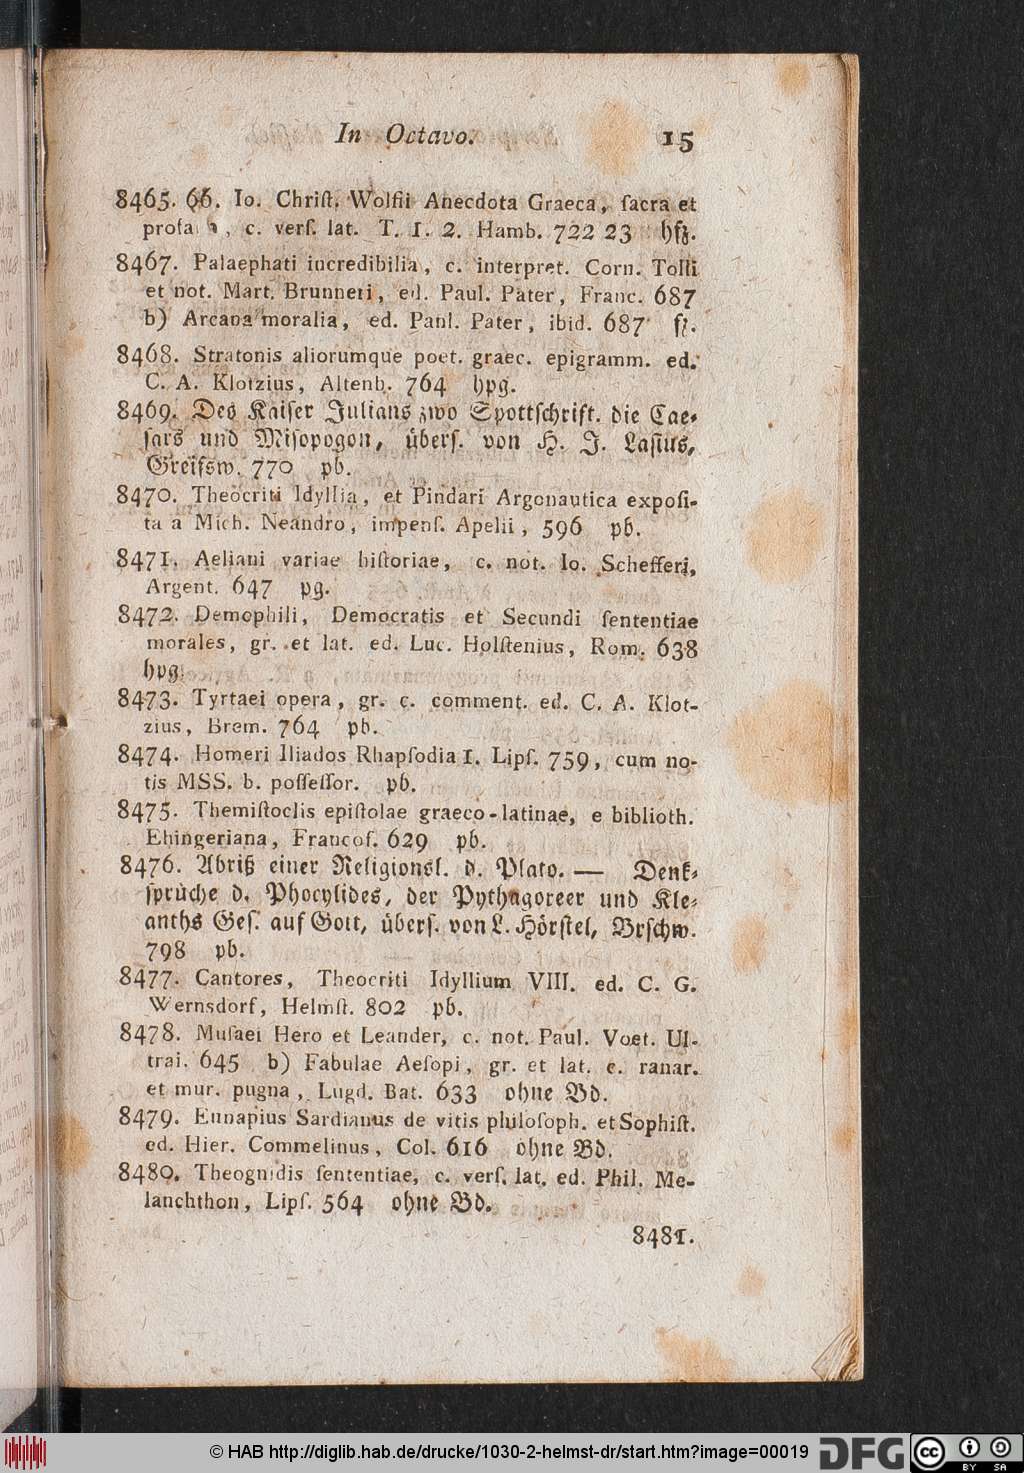 In Octavo. 15
8465. 66. Io. Chriſt. Wolfii Anecdota Graeca, ſacra et
c. verſ. lat. T. 1. 2. Hamb. 722 23 hfz.
8467. Palaephati incredibilia, c. interpret. Corn. Tolli
et not. Mart. Brunneri, ed. Paul. Pater, Franc. 687
b) Arcana moralia, ed. Paul. Pater, ibid. 687 fz.
8468. Stratonis aliorumque poet. graec. epigramm. ed.
C. A. Klotzius, Altenb. 764 hpg.
8469. Des Kaiſer Julians zwo Spottſchrift. die Cae-
ſars und Miſopogon, überſ. von H. J. Laſius,
Greifsw. 770 pb.
8470. Theocriti Idyllia, et Pindari Argonautica expoſi-
ta a Mich. Neandro, impenſ. Apelii, 596 pb.
8471. Aeliani variae hiſtoriae, c. not. Io. Schefferi,
Argent. 647 pg.
8472. Demophili, Democratis et Secundi ſententiae
morales, gr. et lat. ed. Luc. Holſtenius, Rom. 638
hpg.
8473. Tyrtaei opera, gr. c. comment. ed. C. A. Klot-
zius, Brem. 764 pb.
8474. Homeri Iliados Rhapſodia 1. Lipſ. 759, cum no-
tis MSS. b. poſſeſſor. pb.
8475. Themiſtoclis epiſtolae graeco-latinae, e biblioth.
Ehingeriana, Francof. 629 pb.
8476. Abriß einer Religionsl. d. Plato. — Denk-
ſprüche d. Phocylides, der Pythagoreer und Kle-
anths Geſ. auf Gott, überſ. von L. Hörſtel, Brſchw.
798 pb.
8477. Cantores, Theocriti Idyllium VIII. ed. C. G.
Wernsdorf, Helmſt. 802 pb.
8478. Muſaei Hero et Leander, c. not. Paul. Voet. Ul-
trai. 645 b) Fabulae Aeſopi, gr. et lat. e. ranar.
et mur. pugna, Lugd. Bat. 633 ohne Bd.
8479. Eunapius Sardianus de vitis philoſoph. et Sophiſt.
ed. Hier. Commelinus, Col. 616 ohne Bd.
8480. Theognidis ſententiae, c. verſ. lat. ed. Phil. Me-
lanchthon, Lipſ. 564 ohne Bd.
8481.
© HAB http://diglib.hab.de/drucke/1030-2-helmst-dr/start.htm?image=00019
DFG
cc BY SA